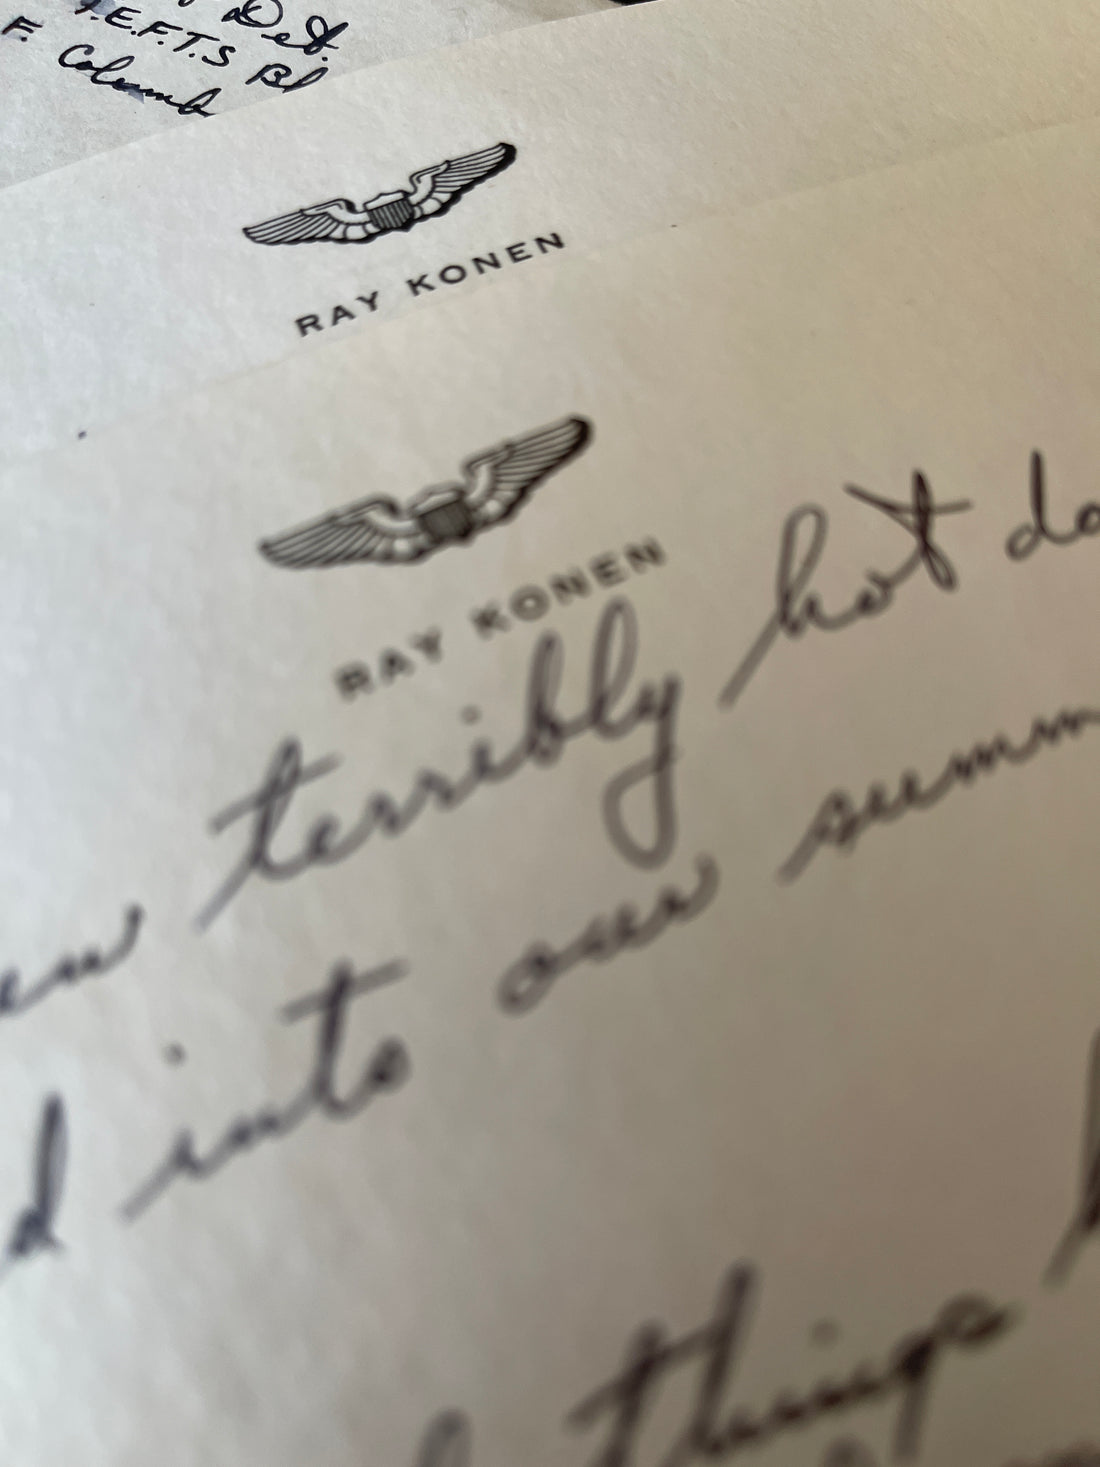 Det.
F. T.E.F.T.S Bl
Columb
RAY KONEN
RAY KONEN
terribly hot da
d into our summ
things